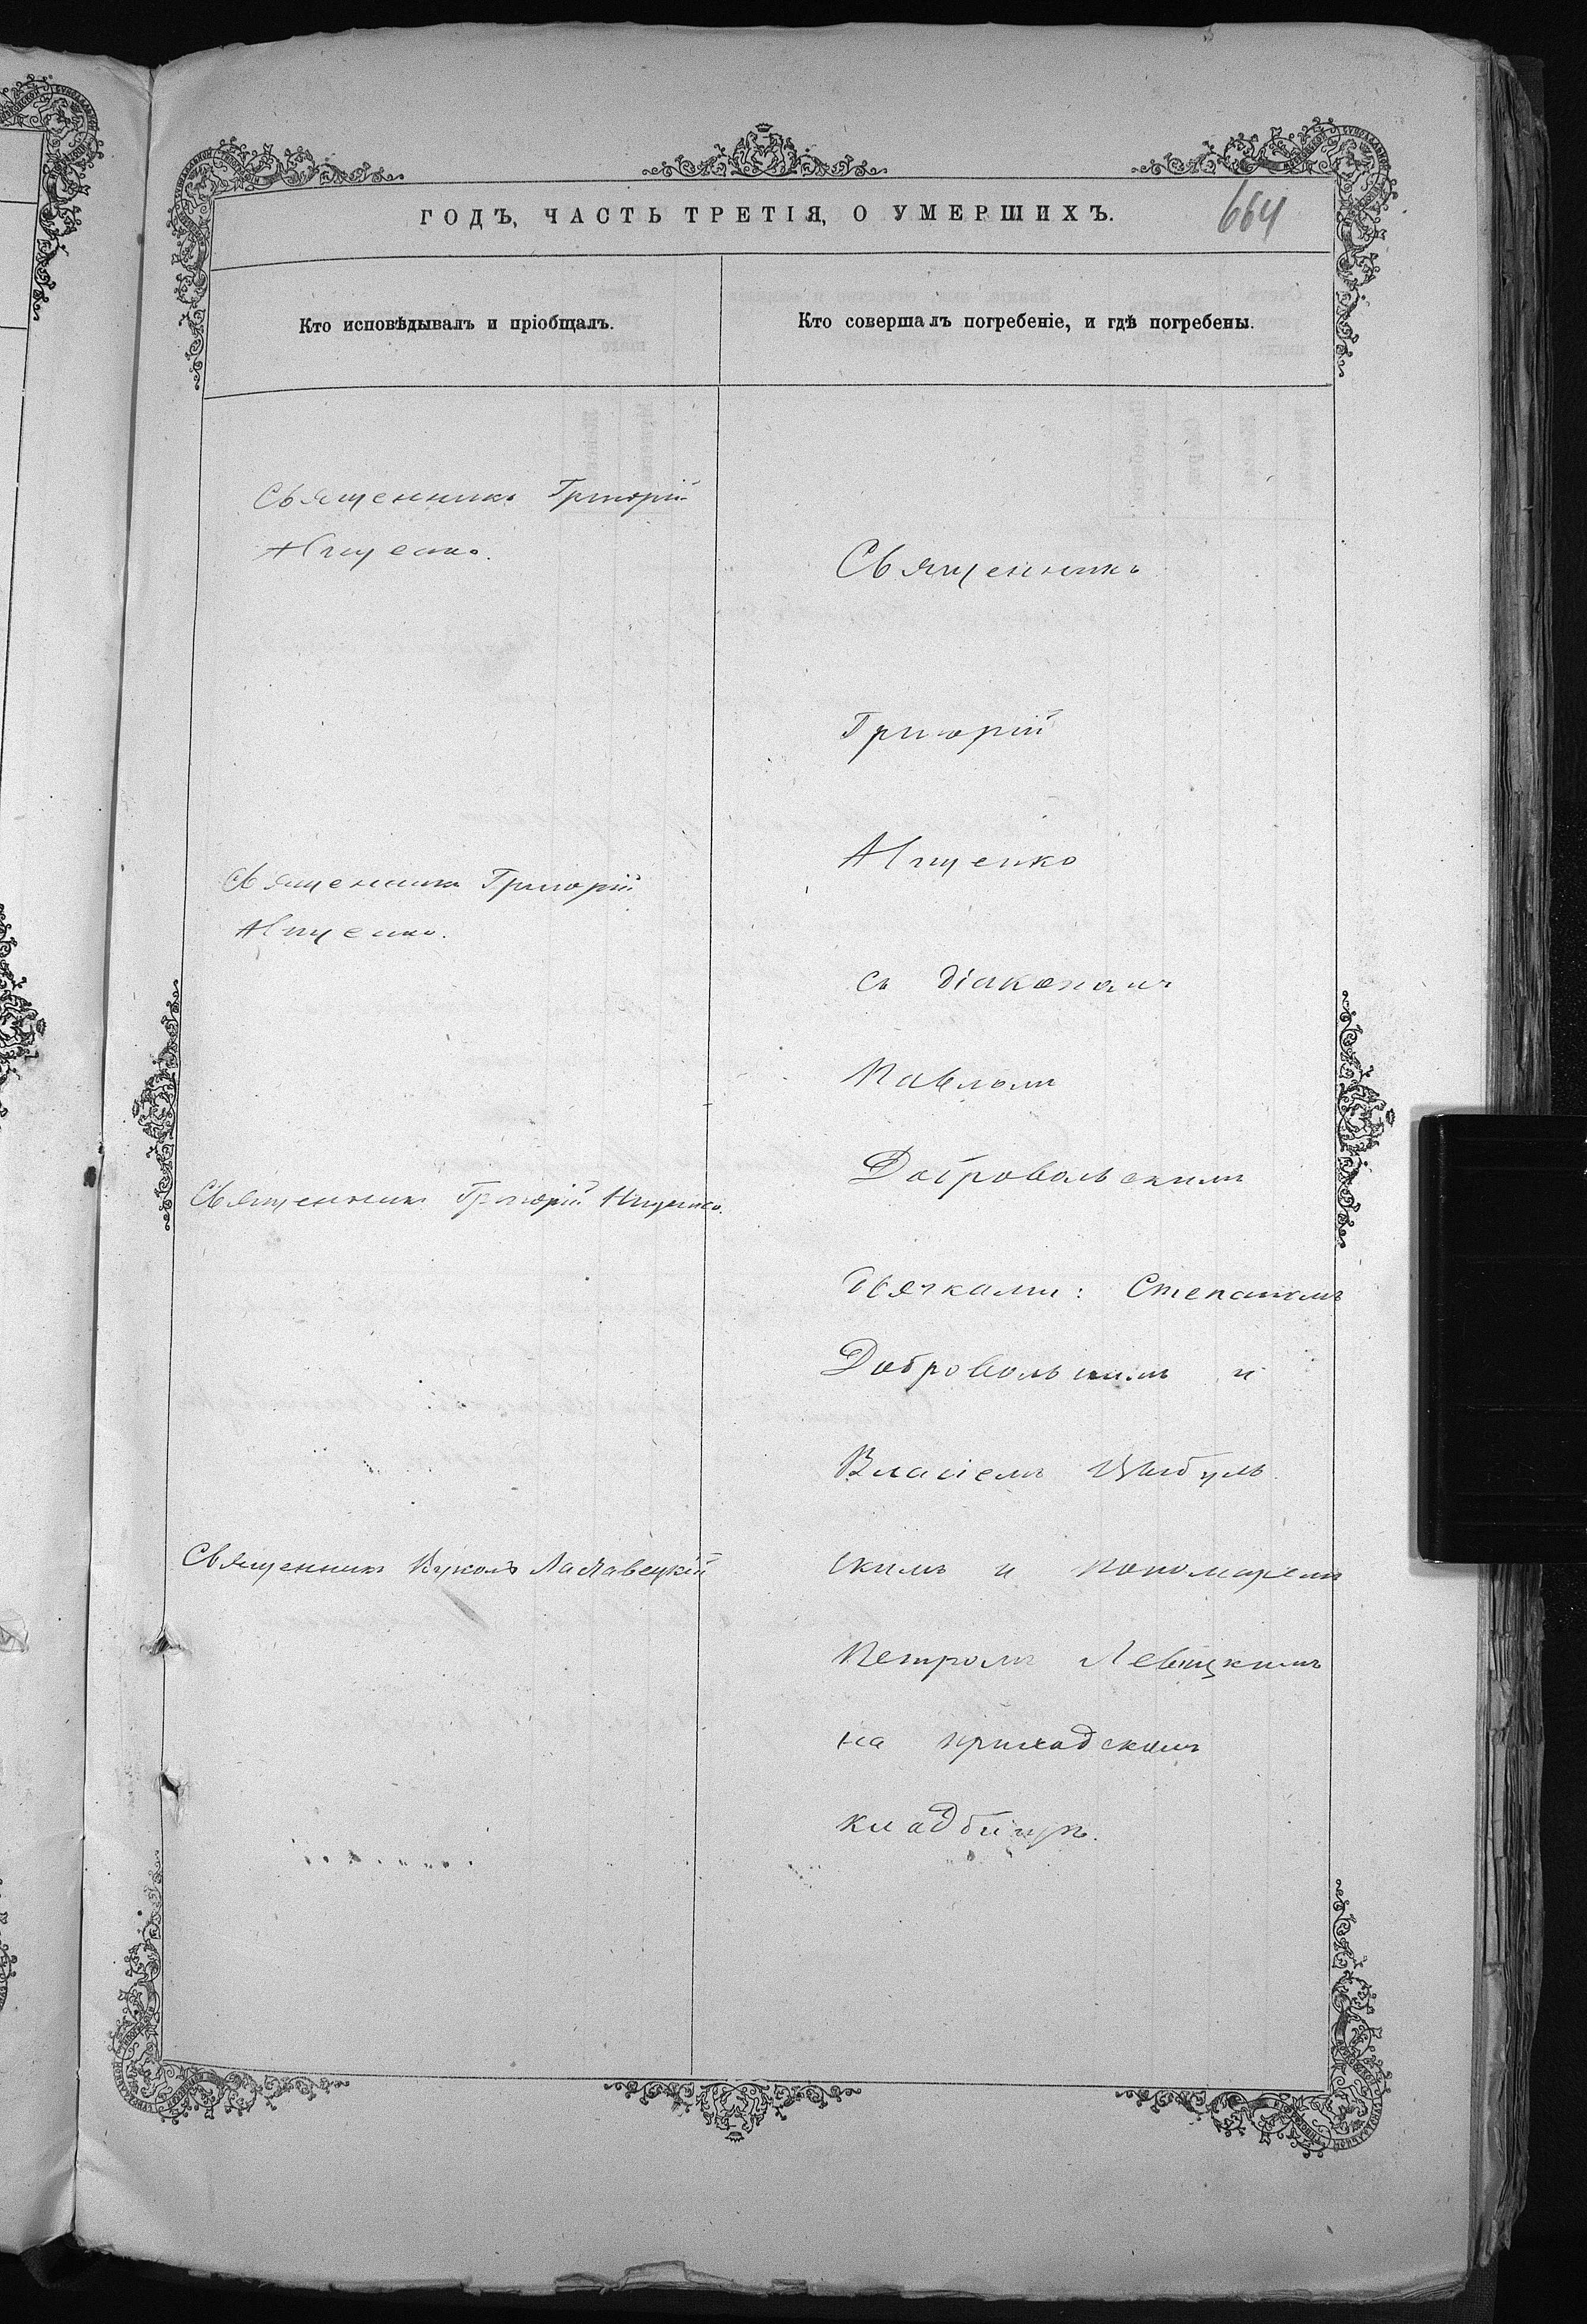 ГОДЪ, ЧАСТЬ ТРЕТІЯ, О УМЕРШИХЪ.
664
Кто исповѣдывалъ и пріобщалъ.
Кто совершалъ погребеніе, и гдѣ погребены.
Священникъ Григорій
Ищенко.
Священникъ Григорій
Ищенко.
Священникъ Григорій Ищенко.
Священникъ
Священникъ
Григорій
Ищенко
съ діакономъ
Павломъ
Добровольскимъ
Дьячками: Степаномъ
Добровольскимъ и
Власіемъ Цыбуль
скимъ и пономаремъ
Петромъ Левицкимъ
на приходскомъ
кладбищѣ.